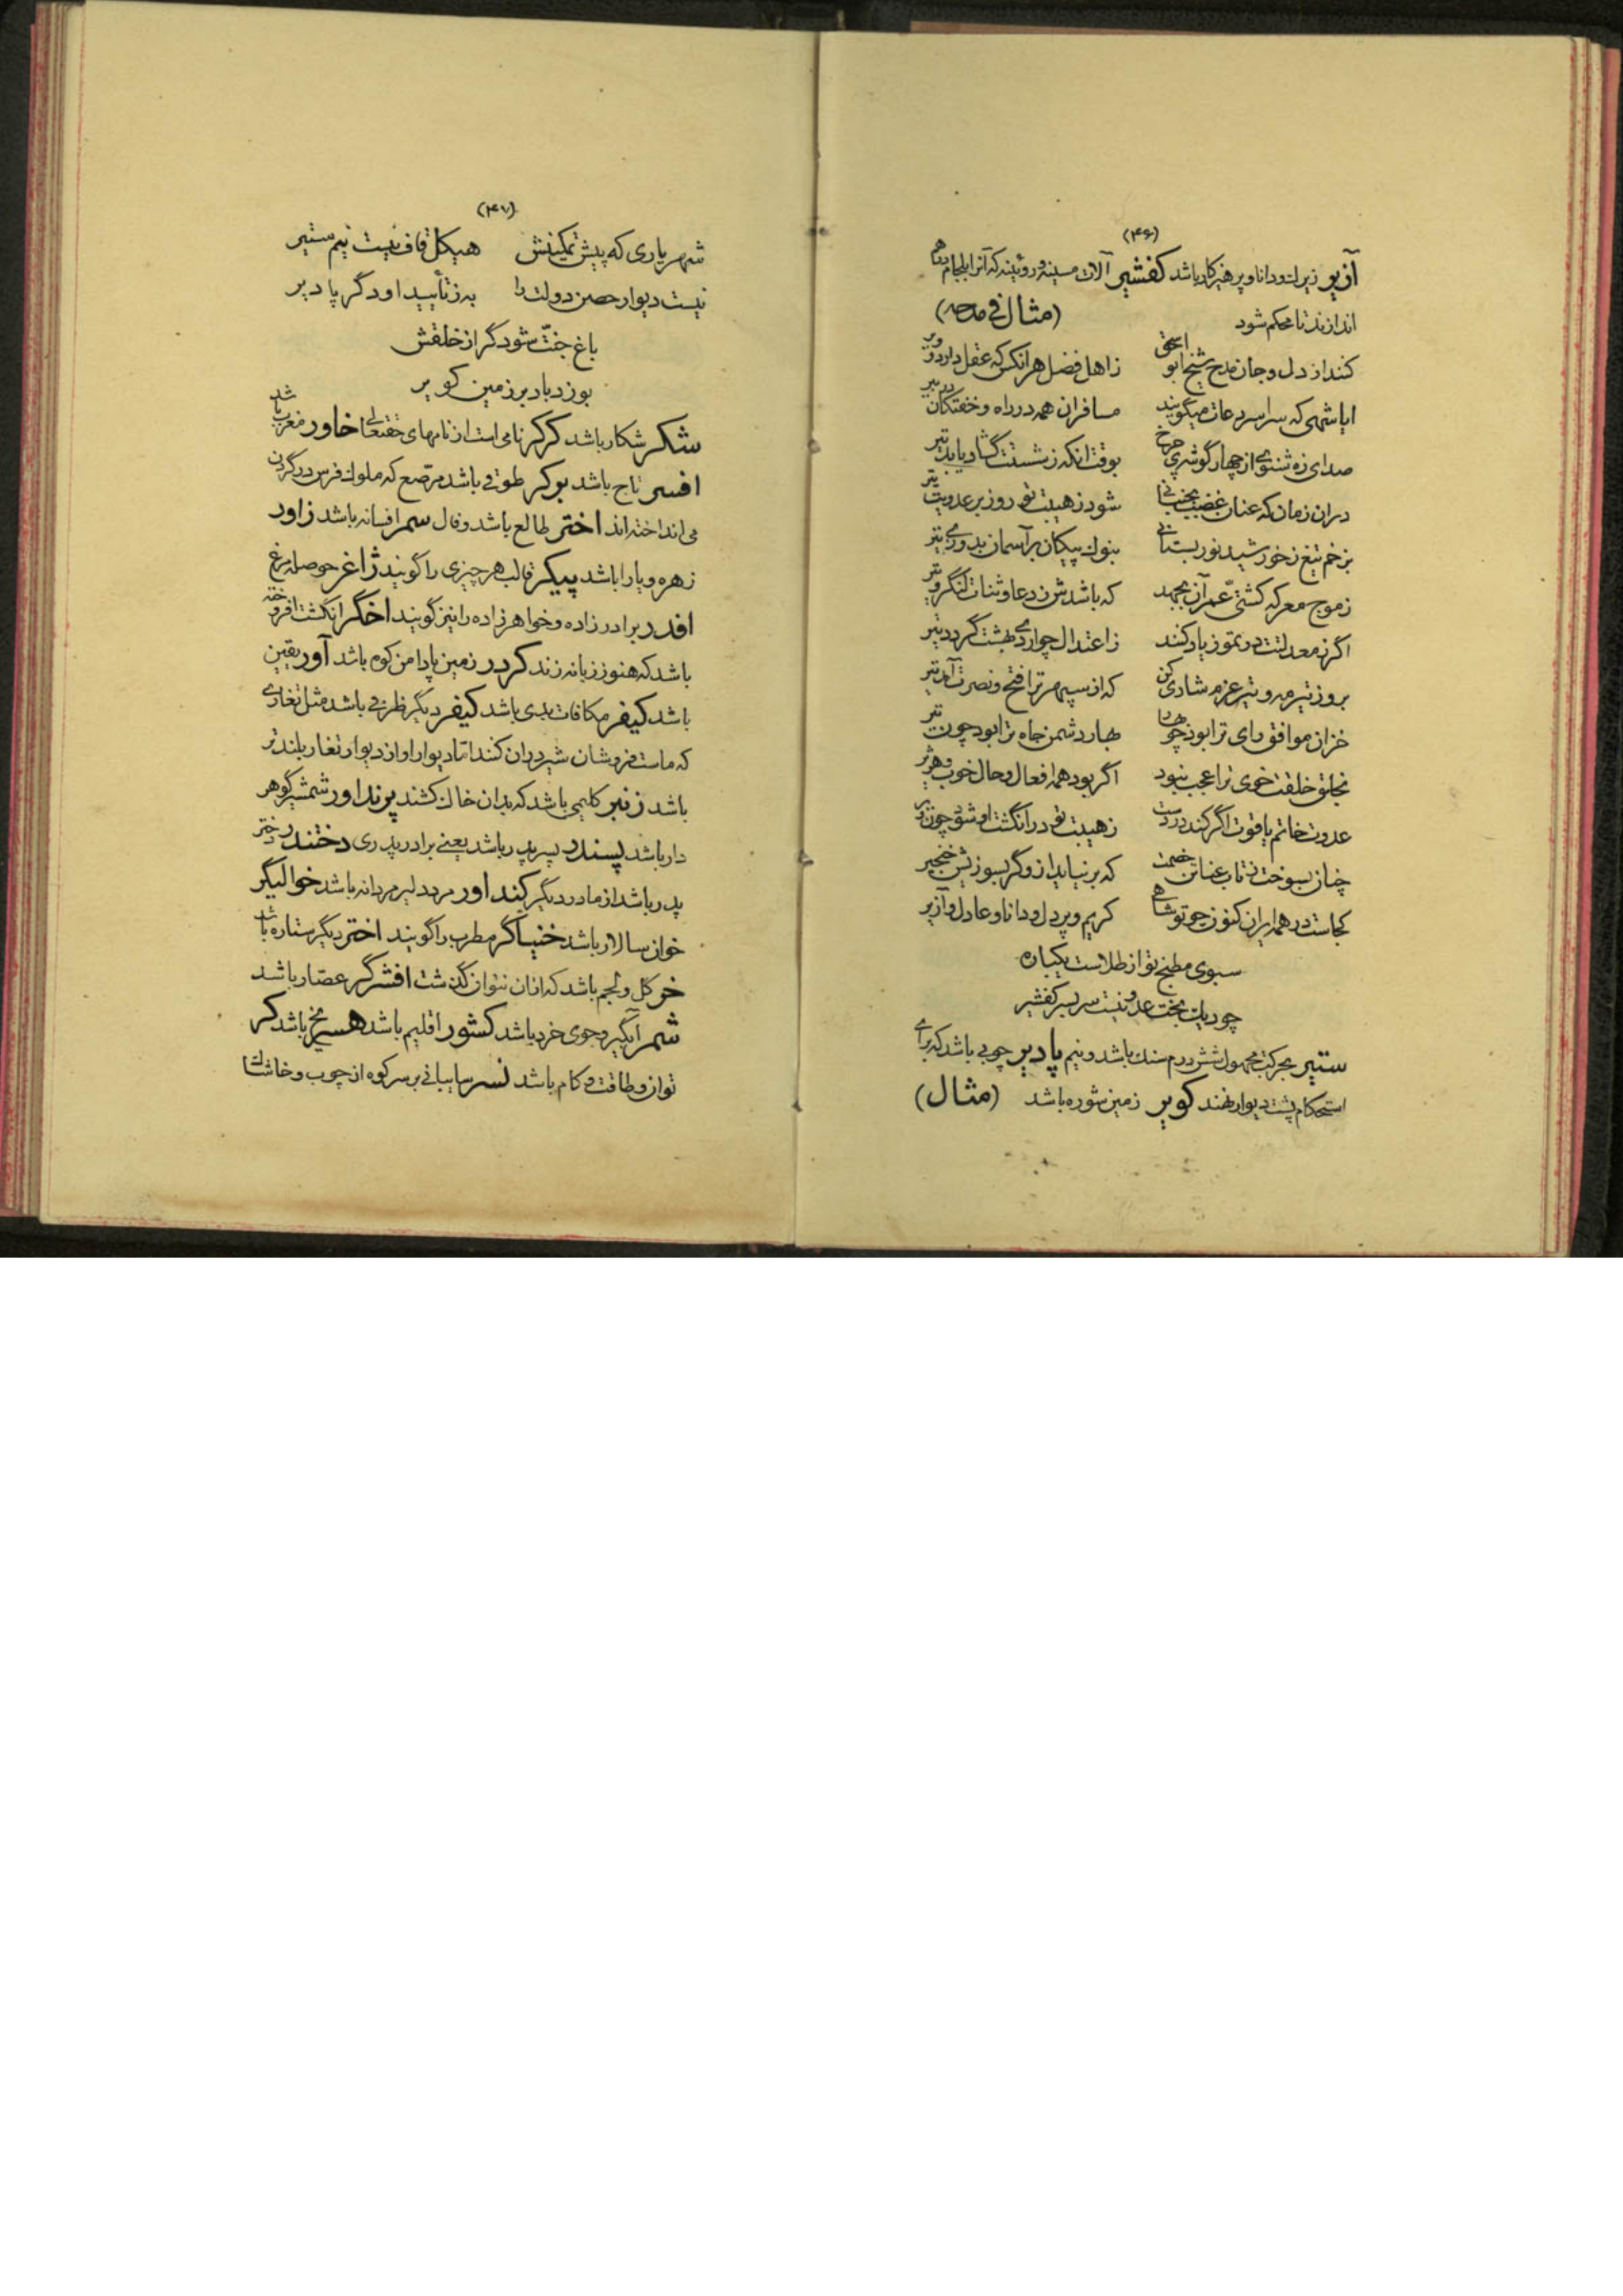 (۴۶)
آزیر زیرك و دانا و پرهیزکار باشد کفشیر آلات مسینه و روئینه که آنرا بلجام بهم
اندازند تا محکم شود (مثال فی مدحه)
کند از دل و جان مدح شیخ ابو اسحق ز اهل فضل هر انکس که عقل دارد و ویر
ایا شهی که سراسر دعات میگویند مسافران همه در راه و خفتکان در تیر
صدای زه شنوی از چهار گوشه چرخ بوقت انکه ز شستت گشاد یابد تیر
دران زمان که عنان غضب بجنبانی شود ز هیبت تو روز بر عدویت تیر
بزخم تیغ ز خورشید نور بستانی بنوك پیکان بر آسمان بدوزی تیر
ز موج معرکه کشتی عمر آن بجهد که باشدش ز دعا و ثنات لنگر و تیر
اگر ز معدلتت در تموز یاد کند ز اعتدال چو اردیبهشت گردد تیر
بروز تیر مه و تیر عزم شادی کن که از سپهر ترا فتح و نصرت آمد تیر
خزان موافق رای ترا بود چو بهار بهار دشمن جاه ترا بود چون تیر
بخلق خلقت خوی ترا عجب نبود اگر بود همه افعال و حال خوب و هژیر
عدوت خاتم یاقوت اگر کند در دست ز هیبت تو در انگشت او شود چون
چنان بسوخت ز تاب عنا تن خصمت که بر نیاید ازو گر بسوزیش خنجیر
کجاست در همه ایران کنون چو تو شاهی کریم و پردل و دانا و عادل و آزیر
سبوی مطبخ تو از طلاست یکباره
چو دیك بخت عدو نیست سربسر کفشیر
ستیر بحرکت مجهول شش درم سنك باشد و نیم پادیر چوبی باشد که برای
استحکام پشت دیوار نهند کویر زمین شوره باشد (مثال)
(۴۷)
شهریاری که پیش تمکینش هیکل قاف نیست نیم ستیر
نیست دیوار حصن دولت را به ز تأیید او دگر پادیر
باغ جنّت شود گر از خلقش
بوزد باد بر زمین کویر
شکر شکار باشد کرکر نامی است از نامهای حقتعالی خاور مغرب باشد
افسر تاج باشد بوکر طوقی باشد مرصّع که ملوك فرس در گردن
می انداخته اند اختر طالع باشد و فال سمر افسانه باشد زاور
زهره و یارا باشد پیکر قالب هر چیزی را گویند ژاغر حوصله مرغ
افدر برادر زاده و خواهر زاده را نیز گویند اخگر انگشت افروخته
باشد که هنوز زبانه زند کردر زمین پادامن کوه باشد آور یقین
باشد کیفر مکافات بدی باشد کیفر دیگر ظرفی باشد مثل تغاری
که ماست فروشان شیر دران کنند امّا دیوار او از دیوار تغار بلندتر
باشد زنبر کلیمی باشد که بدان خاك کشند پرنداور شمشیر گوهر
دار باشد پسندر پسر پدر باشد یعنی برادر پدری دختندر دختر
پدر باشد از مادر دیگر کنداور مرد دلیر مردانه باشد خوالیگر
خوان سالار باشد خنیاگر مطرب را گویند اختر دیگر ستاره باشد
خر کل و لجم باشد که ازان نتوان گذشت افشرگر عصّار باشد
شمر آبگیر و جوی خرد باشد کشور اقلیم باشد هسر یخ باشد کر
توان و طاقت و کام باشد نسر سایبانی بر سر کوه از چوب و خاشاك